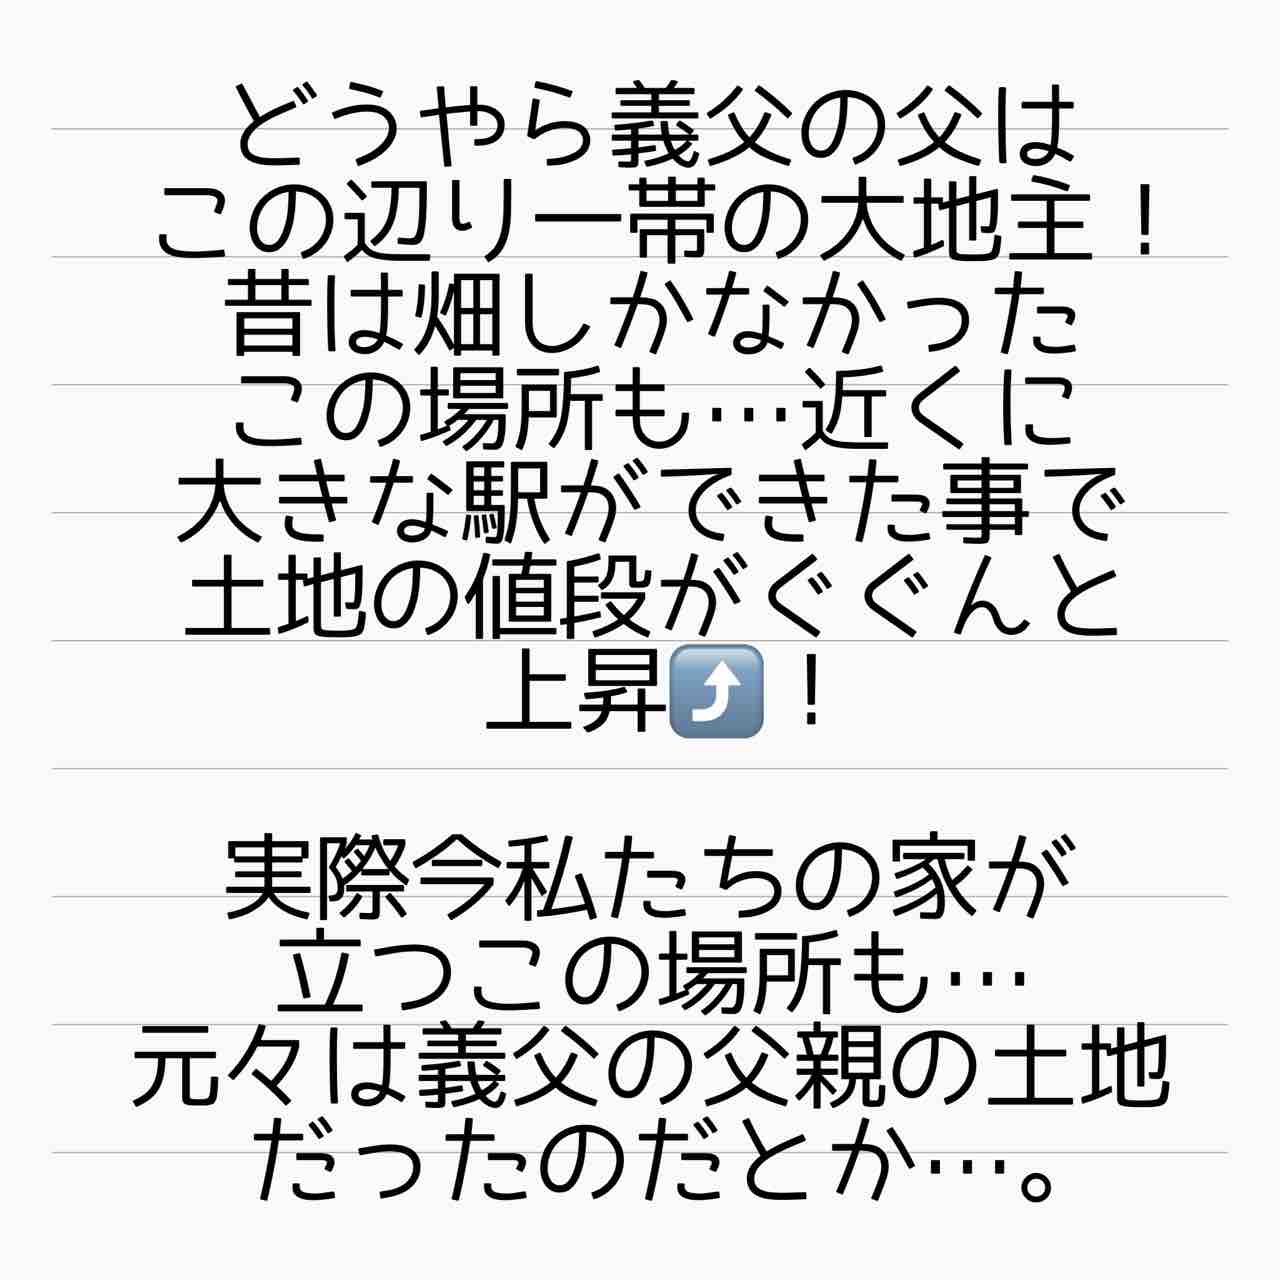 どうやら義父の父は
この辺り一帯の大地主！
昔は畑しかなかった
この場所も…近くに
大きな駅ができた事で
土地の値段がぐぐんと
上昇⤴️！
実際今私たちの家が
立つこの場所も…
元々は義父の父親の土地
だったのだとか…。